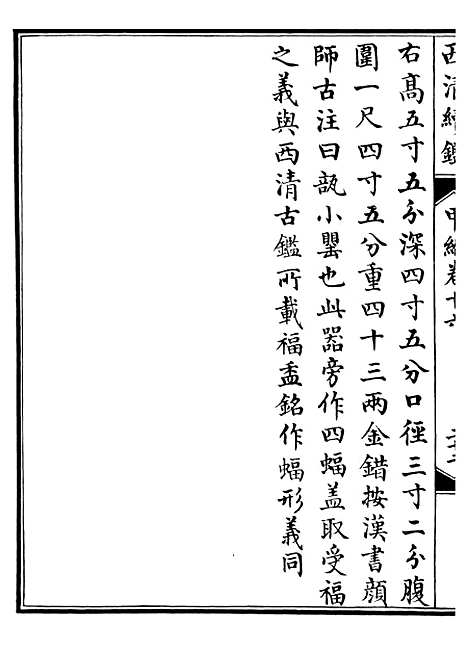 西清續鑑
甲編卷十六
右髙五寸五分深四寸五分口徑三寸二分腹
圍一尺四寸五分重四十三兩金錯按漢書顔
師古注曰瓿小甖也此器旁作四蝠盖取受福
之義與西清古鑑所載福盉銘作蝠形義同